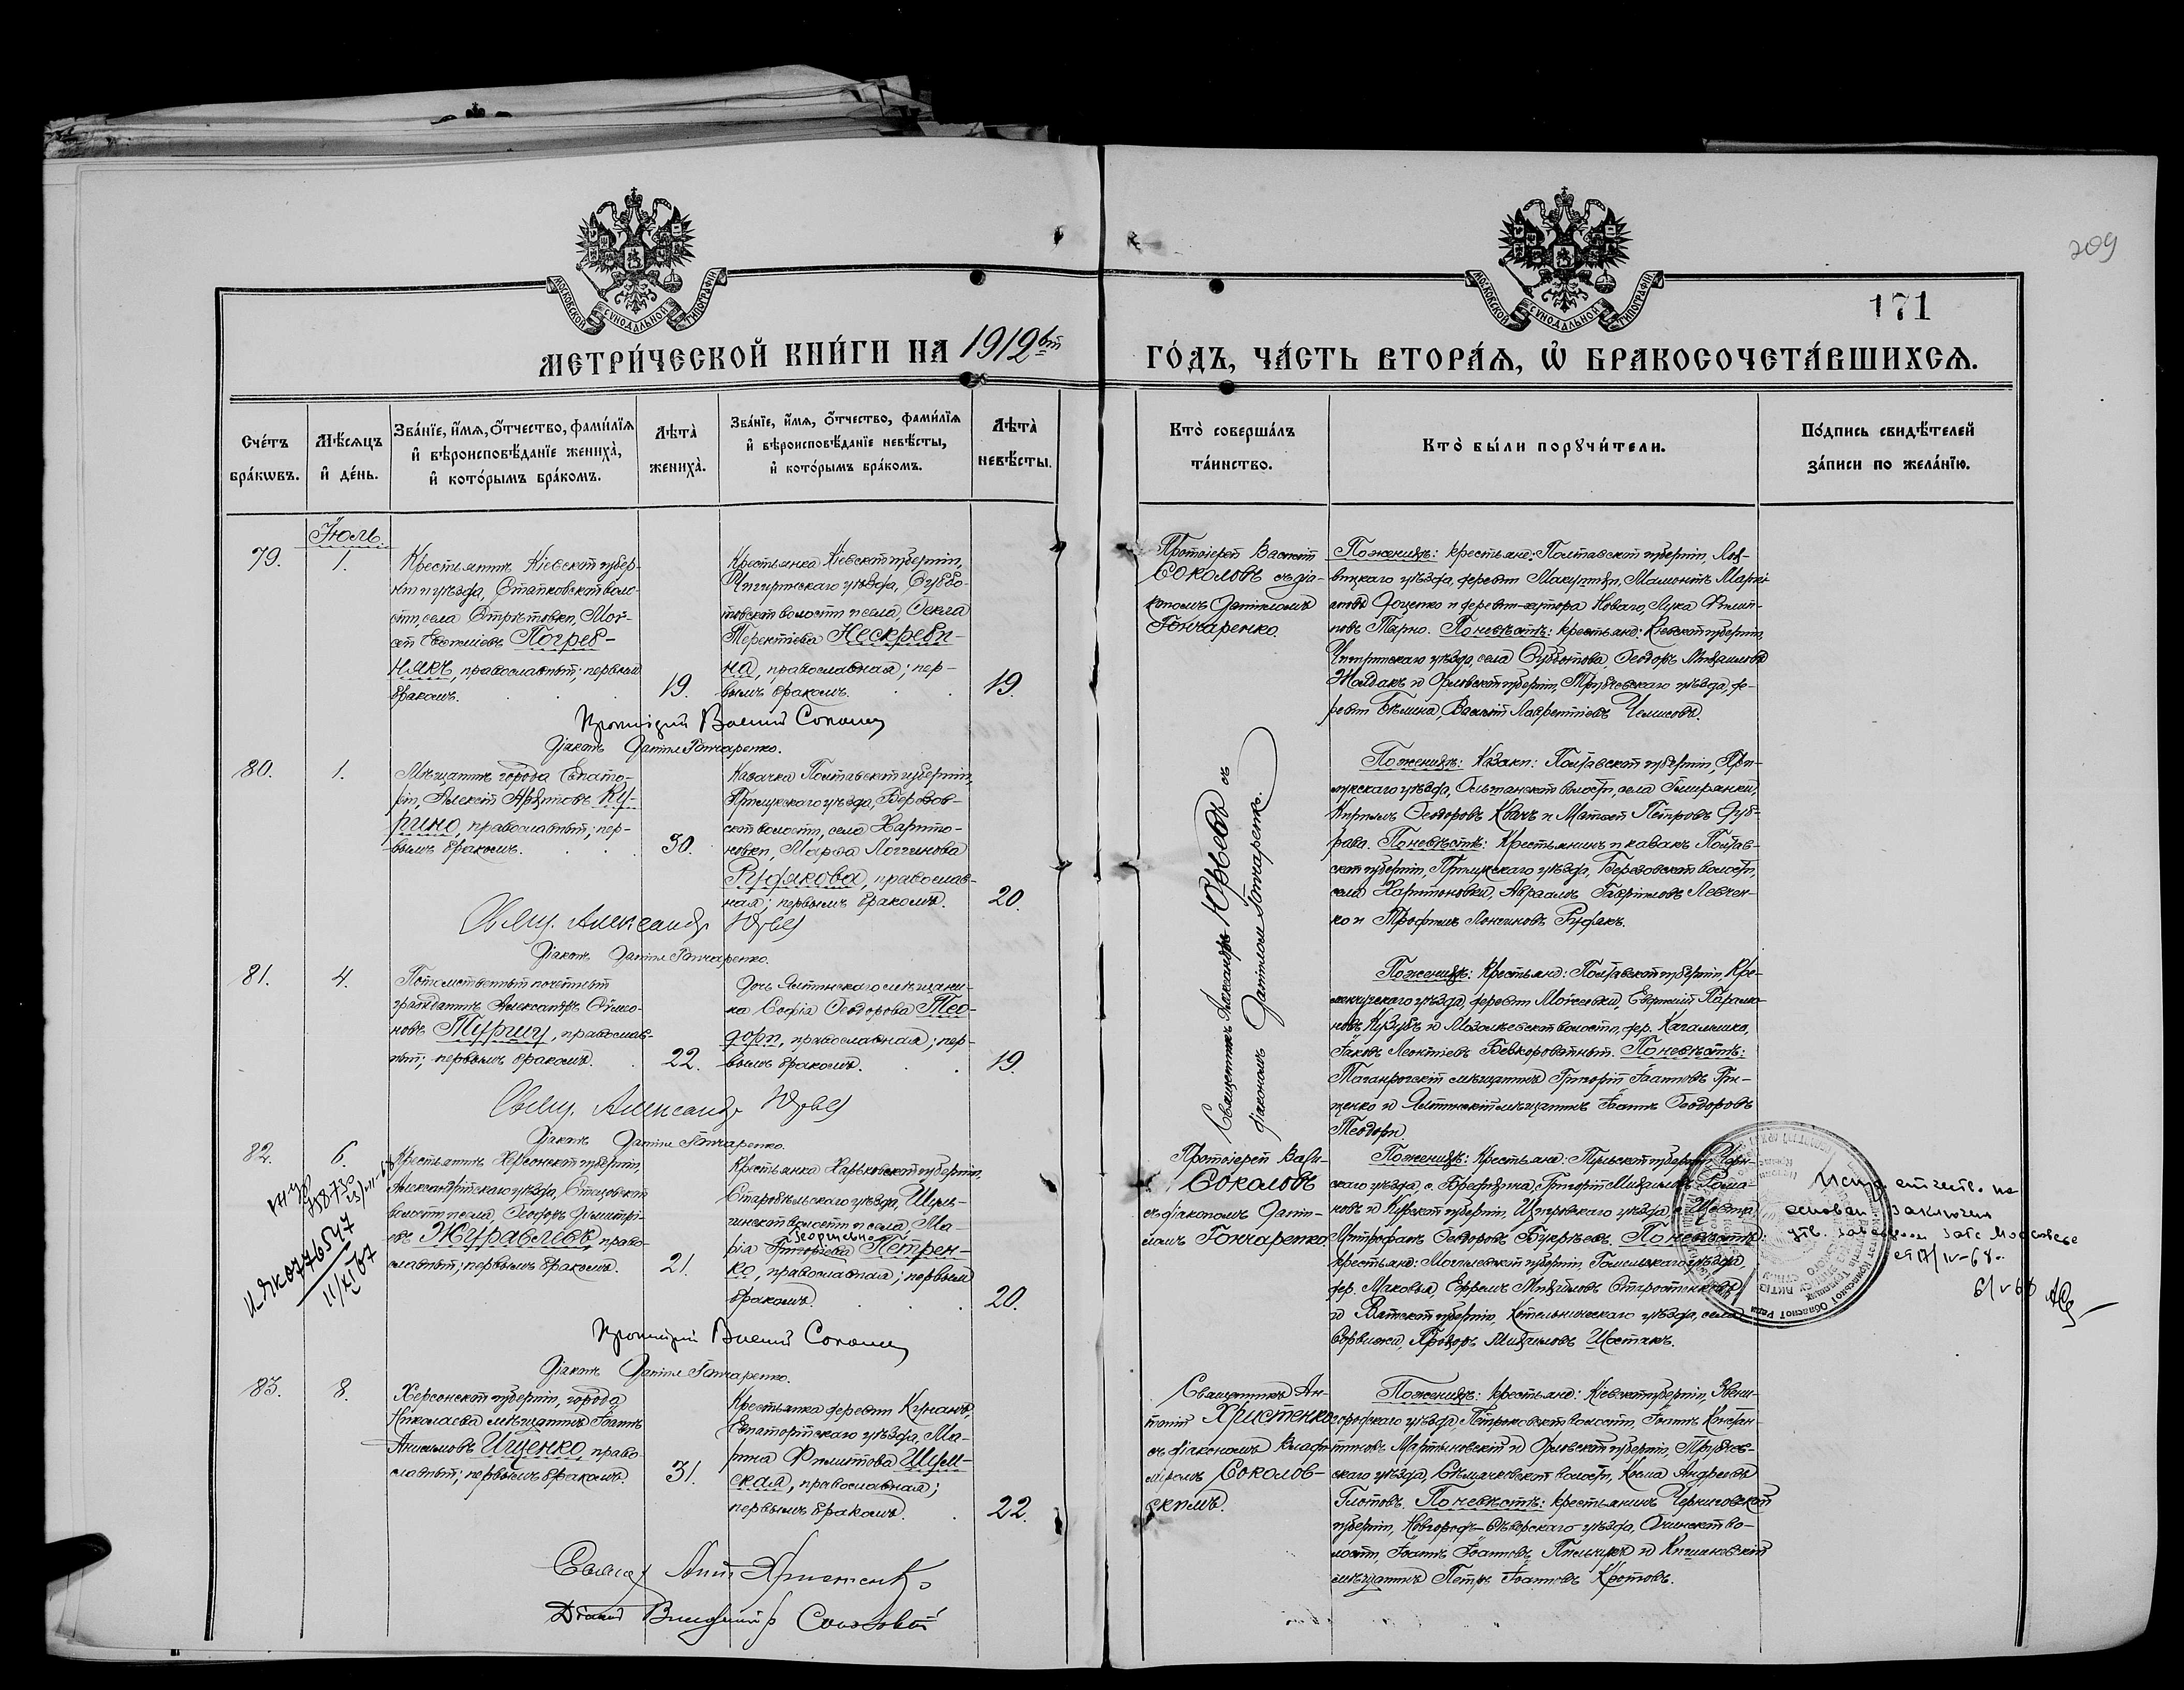 209
171
МОСКОВСКОЙ СѴНОДАЛЬНОЙ ТИПОГРАФІИ
МОСКОВСКОЙ СѴНОДАЛЬНОЙ ТИПОГРАФІИ
МЕТРИ́ЧЕСКОЙ КНИ́ГИ НА 1912
ГО́ДЪ, ЧА́СТЬ ВТОРА́Ѧ, Ѡ҆ БРАКОСОЧЕТА́ВШИХСѦ.
Сче́тъ
бра́кѡвъ.
Мѣ́сѧцъ
и҆ де́нь.
Зва́нїе, и҆́мѧ, ѻ҆́тчество, фами́лїѧ
и҆ вѣроисповѣ́данїе жениха̀,
и҆ кото́рымъ бра́комъ.
Лѣ́та̀
жениха̀.
Зва́нїе, и҆́мѧ, ѻ҆́тчество, фами́лїѧ
и҆ вѣроисповѣ́данїе невѣ́сты,
и҆ кото́рымъ бра́комъ.
Лѣ́та̀
невѣ́сты.
Кто̀ соверша́лъ
та́инство.
Кто̀ бы́ли порꙋчи́тели.
По́дпись свидѣ́телей
за́писи по жела́нїю.
Іюль.
79.
1.
Крестьянинъ Кіевской губер-
ніи и уѣзда, Стайковской воло-
сти, села Стрѣтовки, Мой-
сей Евѳиміевъ Погреб-
някъ, православный; первымъ
бракомъ.
19.
Крестьянка Кіевской губерніи,
Чигиринскаго уѣзда, Суббо-
товской волости и села, Ѳекла
Терентіева Нескреби-
на, православная; пер-
вымъ бракомъ.
19.
Протоіерей Василій
Соколовъ съ діа-
кономъ Даніиломъ
Гончаренко.
По женихѣ: крестьяне: Полтавской губерніи, Лох-
вицкаго уѣзда, деревни Макулихи, Мамонтъ Марті-
новъ Доценко и деревни-хутора Новаго, Лука Филип-
повъ Тарно. По невѣстѣ: крестьяне: Кіевской губерніи,
Чигиринскаго уѣзда, села Субботова, Ѳеодоръ Михаиловъ
Жолдакъ и Орловской губерніи, Трубчевскаго уѣзда, де-
ревни Бѣлина, Василій Лаврентіевъ Чемисовъ.
Протоіерей Василій Соколовъ
Діаконъ Даніилъ Гончаренко.
80.
1.
Мѣщанинъ города Евпато-
ріи, Алексій Архиповъ Ку-
рино, православный; пер-
вымъ бракомъ.
30.
Казачка Полтавской губерніи,
Прилукскаго уѣзда, Березов-
ской волости, села Харито-
новки, Марѳа Логгинова
Рудякова, православ-
ная; первымъ бракомъ.
20.
Священникъ Александръ Юрьевъ съ
діакономъ Даніиломъ Гончаренко.
По женихѣ: Казаки: Полтавской губерніи, При-
лукскаго уѣзда, Ольшанской волости, села Гмирянки,
Кириллъ Ѳеодоровъ Квачъ и Матвей Петровъ Дуб-
рава. По невѣстѣ: Крестьянинъ и казакъ Полтав-
ской губерніи, Прилукскаго уѣзда, Березовской волости,
села Харитоновки, Авраамъ Гавріиловъ Левчен-
ко и Трофимъ Лонгиновъ Рудякъ.
Свящ. Александръ Юрьевъ
Діаконъ Даніилъ Гончаренко.
81.
4.
Потомственный почетный
гражданинъ Александръ Симео-
новъ Туршу, православ-
ный; первымъ бракомъ.
22.
Дочь Ялтинскаго мѣщани-
на Софія Ѳеодорова Тео-
дори, православная; пер-
вымъ бракомъ.
19.
По женихѣ: Крестьяне: Полтавской губерніи, Кре-
менчугскаго уѣзда, деревни Мойсеевки, Евгений Парамо-
новъ Кузубъ и Мозолѣевской волости, дер. Кагамлика,
Іаковъ Леонтіевъ Безкоровайный. По невѣстѣ:
Таганрогскій мѣщанинъ Григорій Іоанновъ Гри-
ценко и Ялтинскій мѣщанинъ Іоаннъ Ѳеодоровъ
Теодори.
Свящ. Александръ Юрьевъ
Діаконъ Даніилъ Гончаренко.
82.
6.
Крестьянинъ Херсонской губерніи,
Александрійскаго уѣзда, Стецовской
волости и села, Ѳеодоръ Димитрі-
евъ Журавлевъ, право-
славный; первымъ бракомъ.
21.
Крестьянка Харьковской губерніи,
Старобѣльскаго уѣзда, Шуль-
гинской волости и села, Ма-
Георгиевна
рія Григорьева Петрен-
ко, православная; первымъ
бракомъ.
20.
II-ЯК 0776547
11/XI 67
Протоіерей Васи-
лій Соколовъ
съ діакономъ Дані-
иломъ Гончаренко.
По женихѣ: Крестьяне: Тульской губерніи, Черн-
скаго уѣзда, с. Бредихина, Григорій Михаиловъ Рома-
новъ и Курской губерніи, Щигровскаго уѣзда,
Митрофанъ Ѳеодоровъ Бухрѣевъ. По невѣстѣ:
крестьяне: Могилевской губерніи, Гомельскаго уѣзда,
дер. Маковья, Ефремъ Михаиловъ Старостенковъ
и Вятской губерніи, Котельническаго уѣзда, села
Ворвижи, Ѳеодоръ Михаиловъ Шестакъ.
основан. заключен
17/IV-68г.
6/V 68
Протоіерей Василій Соколовъ
Діаконъ Даніилъ Гончаренко.
83.
8.
Херсонской губерніи, города
Николаева мѣщанинъ Іоаннъ
Анисимовъ Ищенко, право-
славный; первымъ бракомъ.
31.
Крестьянка деревни Курманъ,
Евпаторійскаго уѣзда, Ма-
рина Филиппова Шум-
ская, православная;
первымъ бракомъ.
22.
Священникъ Ан-
тоній Христенко
съ діакономъ Влади-
міромъ Соколов-
скимъ.
По женихѣ: крестьяне: Кіевской губерніи, Звени-
городскаго уѣзда, Петриковской волости, Іоаннъ Констан-
тиновъ Мартыновскій и Орловской губерніи, Трубчев-
скаго уѣзда, Сѣмячковской волости, Косма Андреевъ
Глотовъ. По невѣстѣ: крестьянинъ Черниговской
губерніи, Новгородъ-Сѣверскаго уѣзда, во-
лости, Іоаннъ Іоанновъ Пильчукъ и Кишиневскій
мѣщанинъ Петръ Іоанновъ Кротовъ.
Свящ. Антоній Христенко
Діаконъ Владиміръ Соколовскій